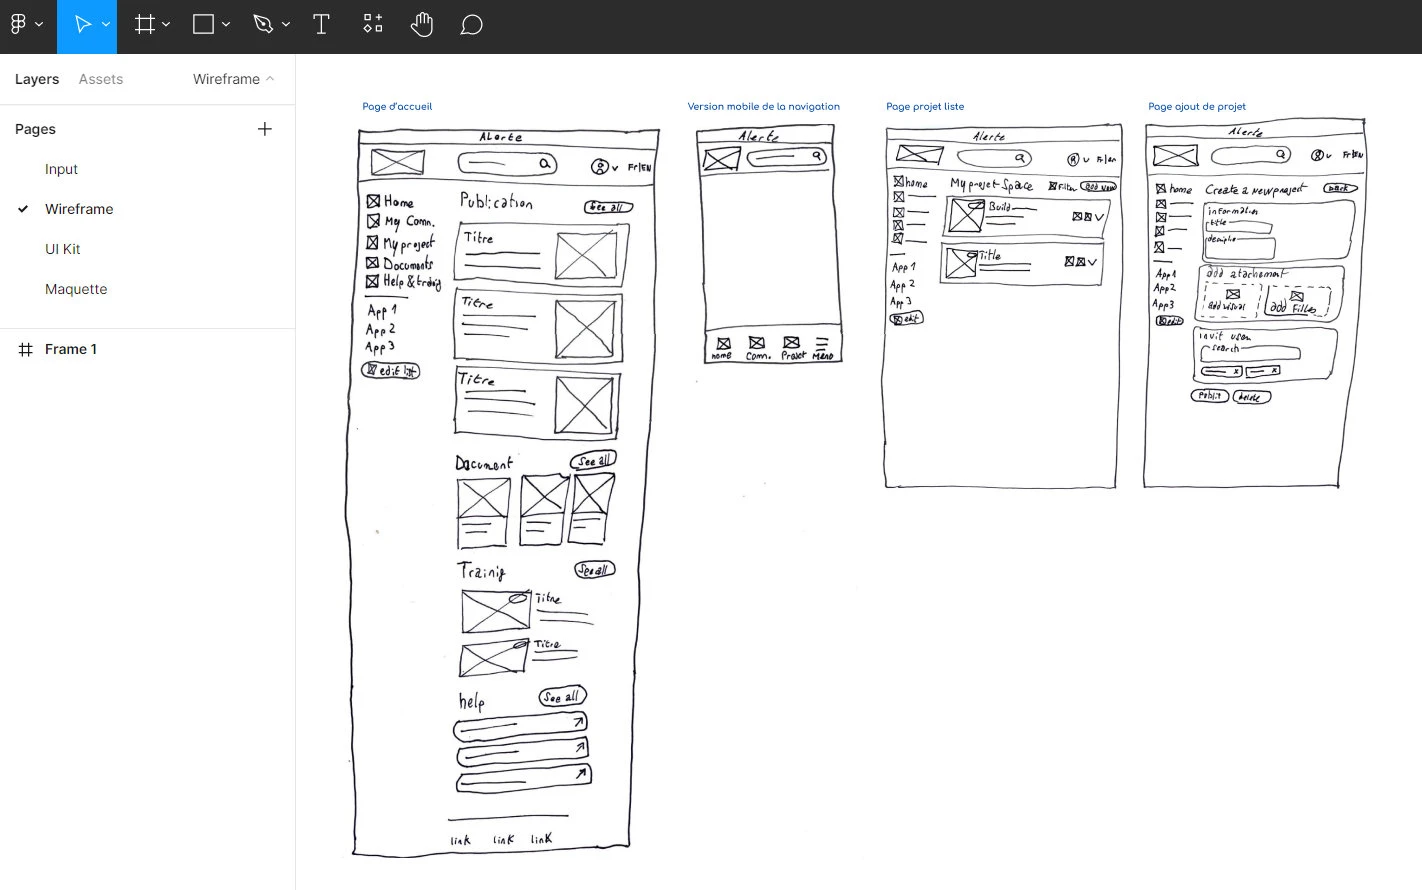 Layers
Assets
Wireframe
Pages
Input
Wireframe
UI Kit
Maquette
Frame 1
Page d'accueil
ALerte
Fr|EN
Home
My Comm.
My project
Documents
App 1
App 2
App 3
edit list
Publication
See all
Titre
Titre
Titre
Document
See all
Trainig
See all
Titre
Titre
help
See all
link link link
Version mobile de la navigation
Alerte
home Comm. Project Menu
Page projet liste
Alerte
Fr|en
home
App 1
App 2
App 3
edit
My projet Space
Filter
add New
Build
Title
Page ajout de projet
Alerte
Fr|EN
home
App1
App2
App3
edit
Create a new project
back
information
title
add atachement
add visual
add Files
invit user
search
Publit
Delete